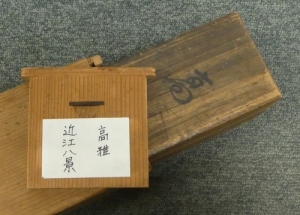 高雅
近江八景